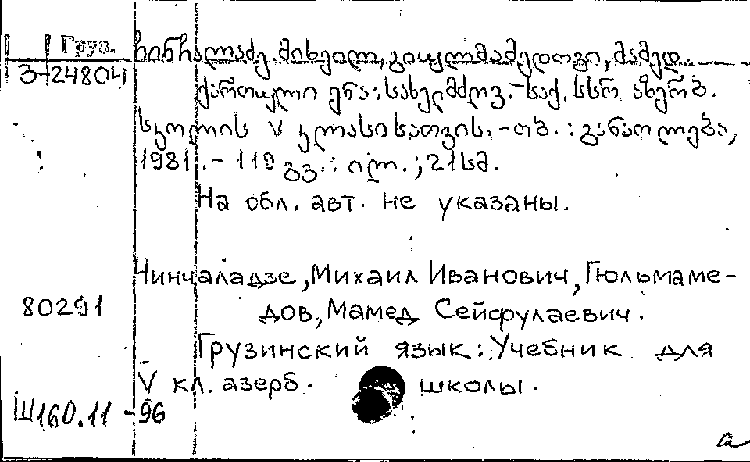 Груз. ჩინჩალაძე, მიხეილ, გიულმამედოვი, მამედ.
З-24804
ქართული ენა: სახელმძღვ.-საქ. სსრ აზერბ.
სკოლის V კლასისათვის.-თბ.: განათლება,
1981.- 119 გვ.: ილ.; 21სმ.
На обл. авт. не указаны.
Чинчаладзе, Михаил Иванович, Гюльмаме-
80291 дов, Мамед Сейфулаевич.
Грузинский язык: Учебник для
V кл. азерб. школы.
Ш160.11-96